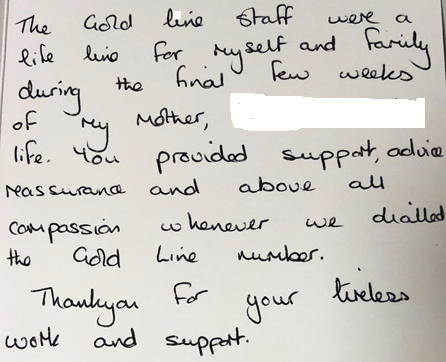 The Gold line staff were a
life line for myself and family
during the final few weeks
of my Mother,
life. You provided support, advice
reassurance and above all
compassion whenever we dialled
the Gold Line number.
Thankyou for your tireless
work and support.